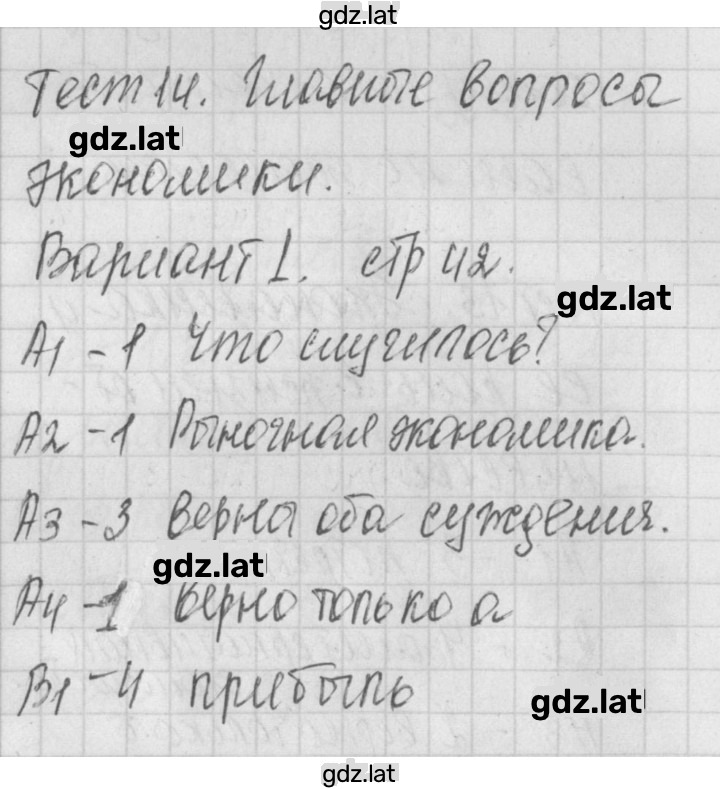 gdz.lat
Тест 14. Главные вопросы
gdz.lat
экономики.
Вариант 1. стр 42.
gdz.lat
А1 - 1 Что случилось?
А2 - 1 Рыночная экономика.
А3 - 3 Верны оба суждения.
gdz.lat
А4 - 1 Верно только а
В1 - 4 прибыль
gdz.lat
gdz.lat